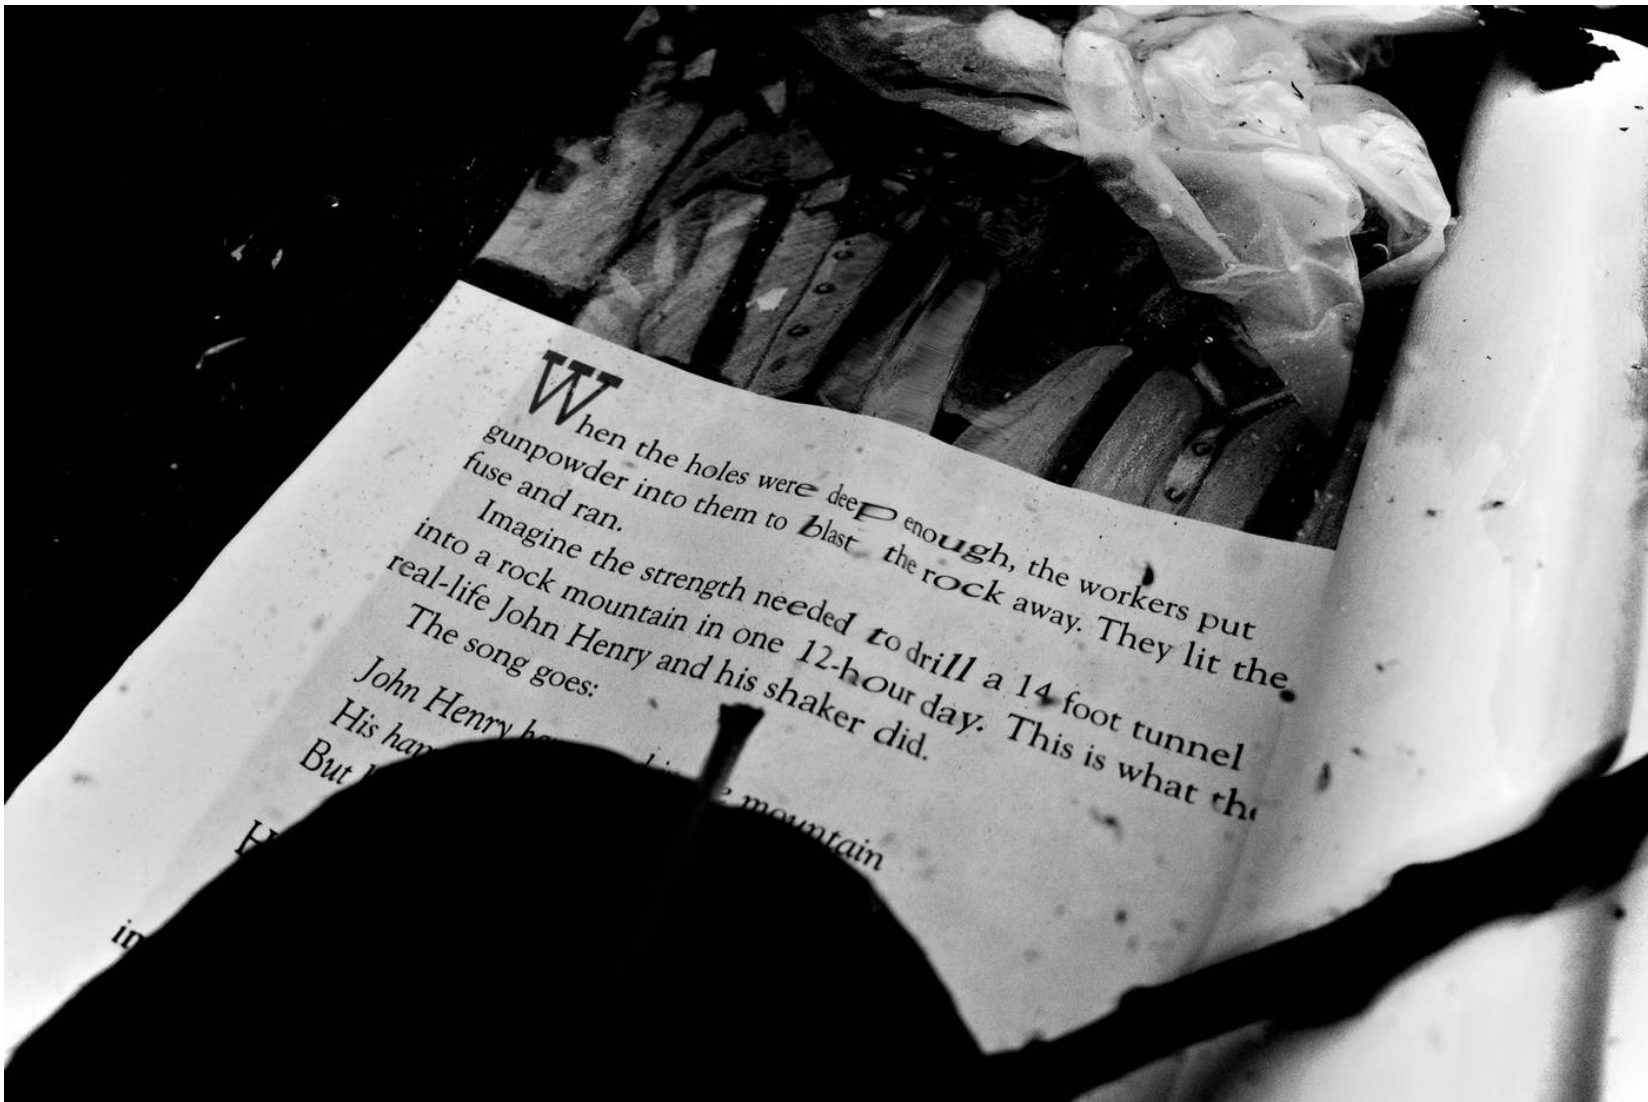 When the holes were deep enough, the workers put
gunpowder into them to blast the rock away. They lit the
fuse and ran.
Imagine the strength needed to drill a 14 foot tunnel
into a rock mountain in one 12-hour day. This is what the
real-life John Henry and his shaker did.
The song goes:
John Henry mountain
His
But